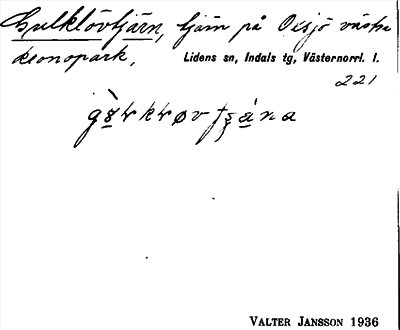 Gulklövtjärn, tjärn på Oxsjö västra
kronopark,
Lidens sn, Indals tg, Västernorrl. l.
221
VALTER JANSSON 1936